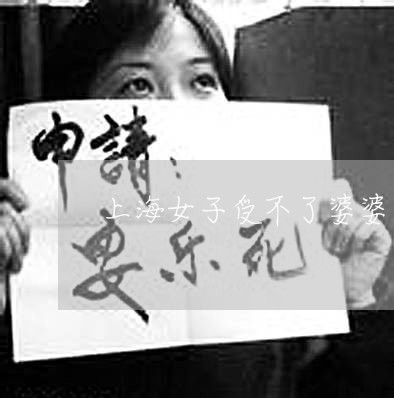 申請：
上海女子受不了婆婆
安乐死